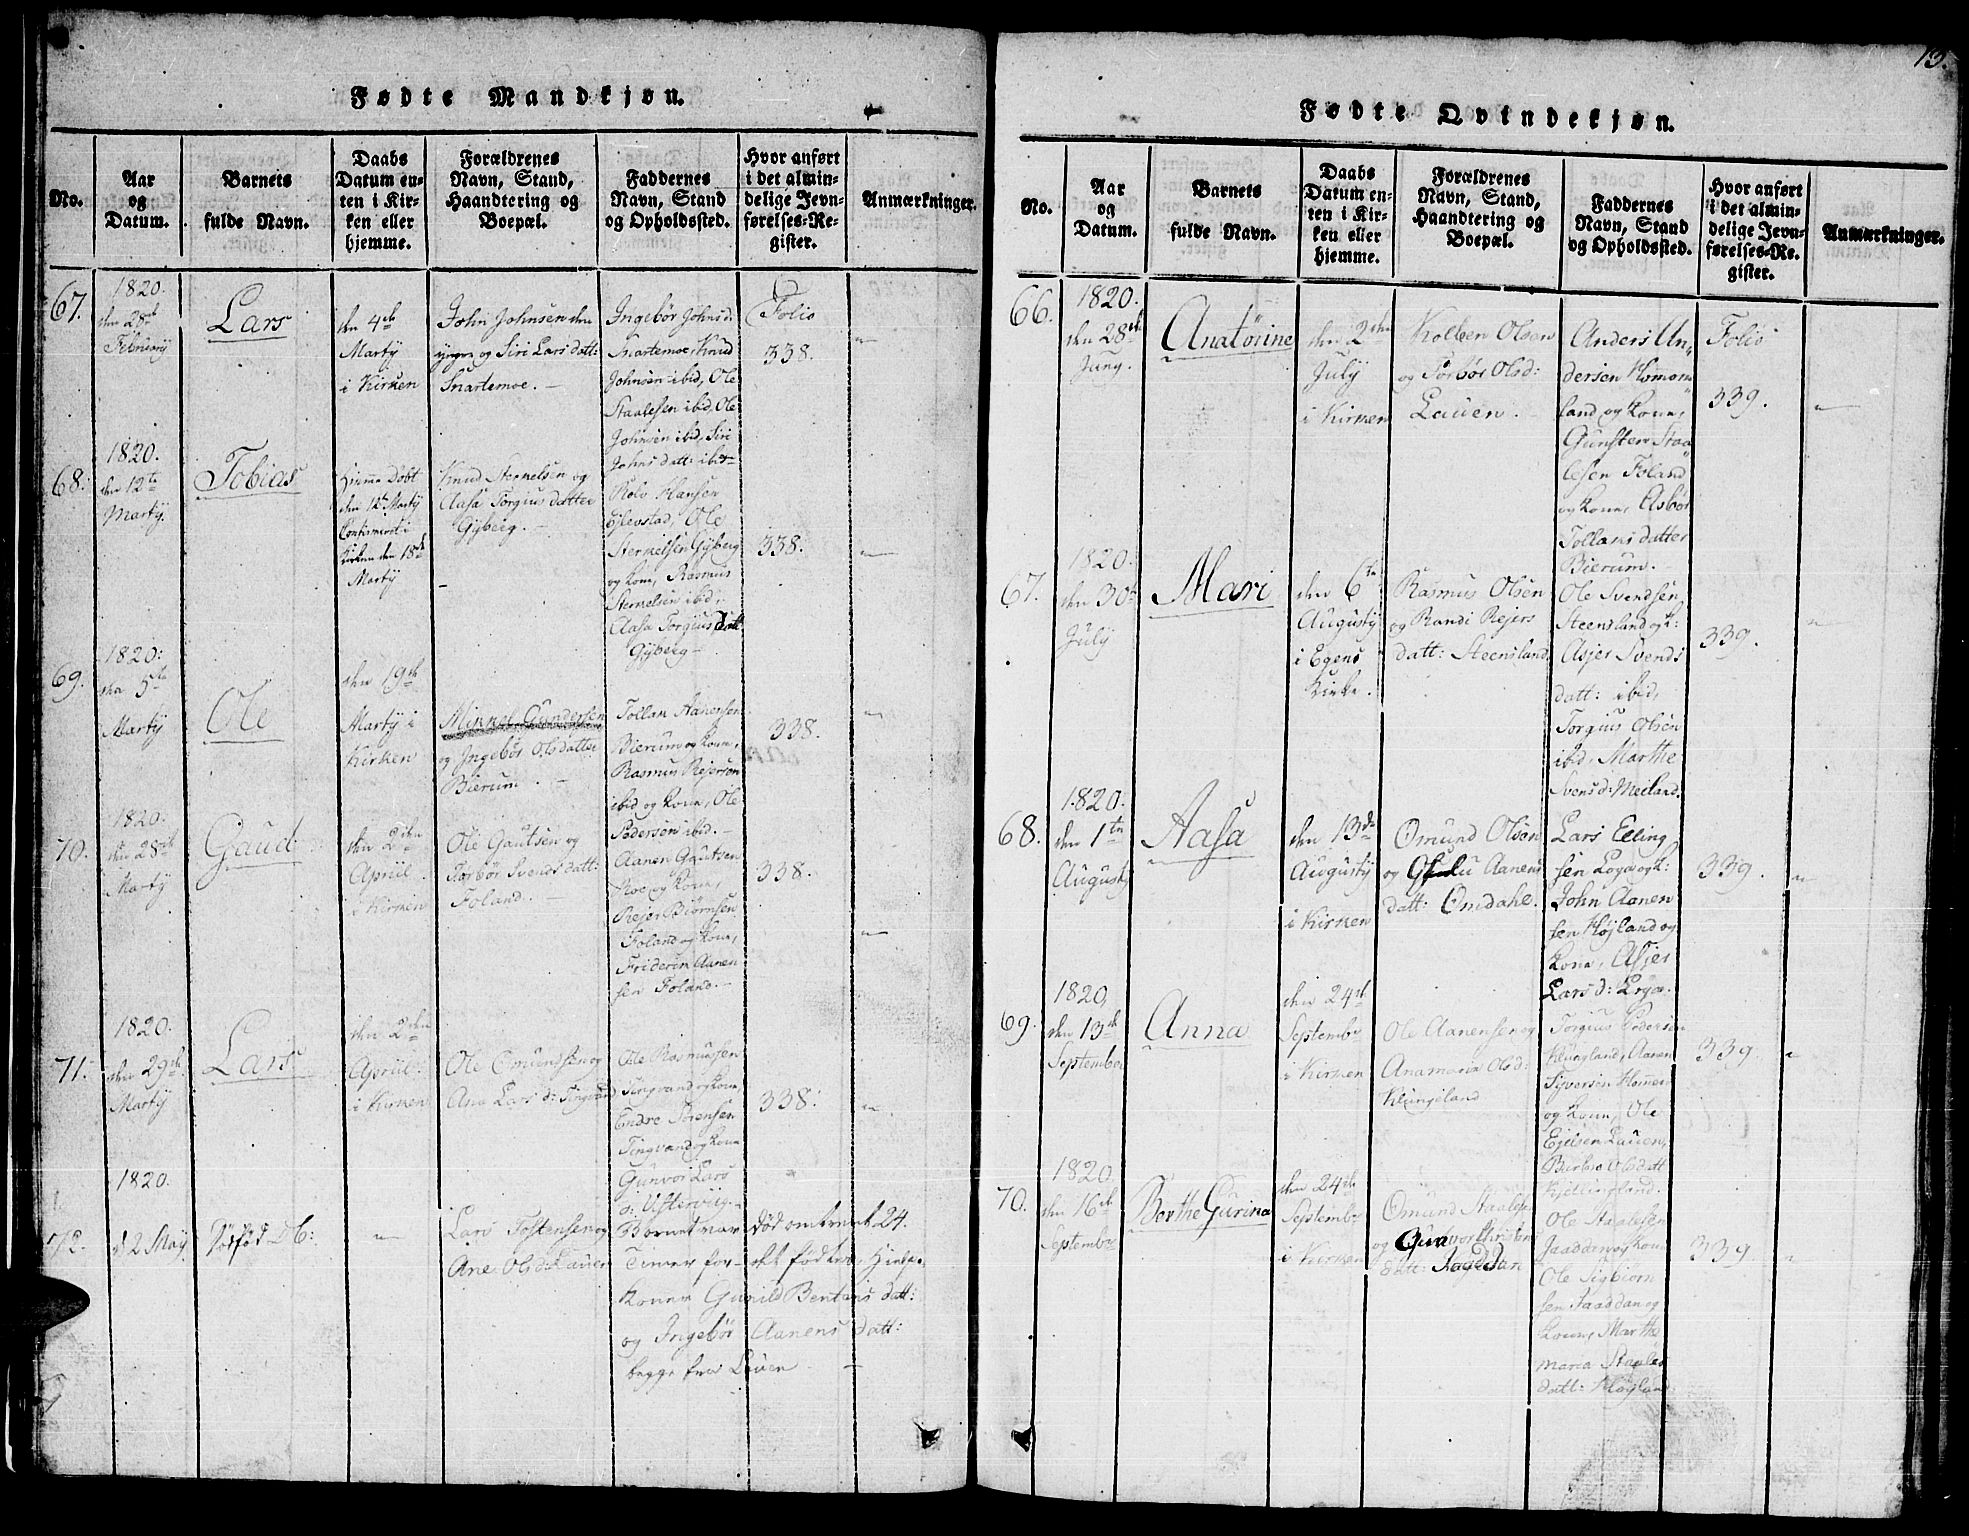 Fødte Mandkjøn.
No.
Aar
og
Datum.
Barnets
fulde Navn.
Daabs
Datum en-
ten i Kir-
ken eller
hjemme.
Forældrenes
Navn, Stand,
Haandtering og
Boepæl.
Faddernes
Navn, Stand
og Opholdssted.
Hvor anført
i det almin-
delige Jevn-
førelses-Re-
gister.
Anmærkninger.
67.
1820.
den 28de
February
Lars
den 4de
Marty
i Kirken
John Johnsen den
yngre og Siri Lars datt:
Snartemoe. —
Ingebør Johnsd:
Snartemoe, Knud
Johnsen ibid, Ole
Staalesen ibid, Ole
Johnsen ibid, Siri
Johns datt: ibid
Folio
338.
68.
1820.
den 12te
Marty.
Tobias
Hjemme Døbt
den 12te Marty
Confirmeret i
Kirken den 18de
Marty
Knud Sternelsen og
Aasa Torgius datter
Gyberg. —
Rolv Hansen
Ole
Sternelsen Gyberg
og Kone, Rasmus
Sternelsen ibid,
Aasa Torgius datt
Gyberg —
338.
69.
1820:
den 5te
Marty
Ole
den 19de
Marty i
Kirken
Gundersen
og Ingebør Olsdatter
Bierum. —
Tollan Aanensen
Bierum og Kone,
Rasmus Rejersen
ibid og Kone, Ole
Pedersen ibid. —
338.
70.
1820.
den 28de
Marty
Gaud
den 2den
Apriil.
i Kirken
Ole Gautsen og
Torbør Svends datt:
Foland. —
Aanen Gautsen
Roe og Kone,
Rejer Biørnsen
Foland og Kone,
Friderik Aanen
sen Foland. —
338.
71.
1820.
den 29de
Marty
Lars
den 2den
Apriil.
i Kirken
Ole Omundsen og
Ana Lars d: Tingvand
Ole Rasmussen
Tingvand og Kone,
Endre Sørensen
Tingvand og Kone
Gunvor Lars
338.
72.
1820.
d. 2 May
Dødfød
Lars Tostensen og
Ane Olsd: Lauen
Barnet var død omtrent 24.
Timer før det fødtes, Hielpe,
Koner Gunild Bentons datt:
og Ingebør Aanens datt:
begge fra Lauen. —
13.
Fødte Qvindekjøn.
No.
Aar
og
Datum.
Barnets
fulde Navn.
Daabs
Datum en-
ten i Kir-
ken eller
hjemme.
Forældrenes
Navn, Stand,
Haandtering og
Boepæl.
Faddernes
Navn, Stand
og Opholdssted.
Hvor anført
i det almin-
delige Jevn-
førelses-Re-
gister.
Anmærkninger.
66.
1820.
den 28de
Juny.
Anatorine
den 2den
July
i Kirken
Kolben Olsen
og Torbør Olsd:
Lauen.
Anders An-
dersen Homom-
land og Kone,
Gunsten Staa
lesen Foland
og Kone, Asbør
Tollans datter
Bierum. —
Folio
339.
67.
1820.
den 30te
July
Mari
den 6te
Augusty
i Egens
Kirke.
Rasmus Olsen
og Randi Rejers
datt: Steensland.
Ole Svendsen,
Steensland og K:
Asjer Svends
datt: ibid,
Torgius Olsen
ibid, Marthe
Svensd: Meiland.
339.
68.
1820.
den 1te
Augusty
Aasa
den 13de
Augusty
i Kirken
Omund Olsen
og Aanens
datt: Omdahl.
Lars Elling
sen Loga og K:
John Aanen
sen Højland og
Kone, Asjer
Lars d: Loga.
339.
69.
1820,
den 13de
September
Anna
den 24de
Septembr
i Kirken
Ole Aanensen og
Anamaria Olsd:
Klungeland
Torgius Pedersen
Klungland, Aanen
Syversen Homme
og Kone, Ole
Ejelsen Lauen,
Barbro Olsdatt
Kjellingland.
339.
70.
1820
den 16de
September
Berthe Gurina
den 24de
Septembr
i Kirken
Omund Staalesen
og Gunvor Christens
datt: Jaaddan
Ole Staalesen
Jaaddan og Kone
Ole Sigbiørn
sen Jaaddan og
Kone, Marthe
maria Staales
datt: Høyland
339.